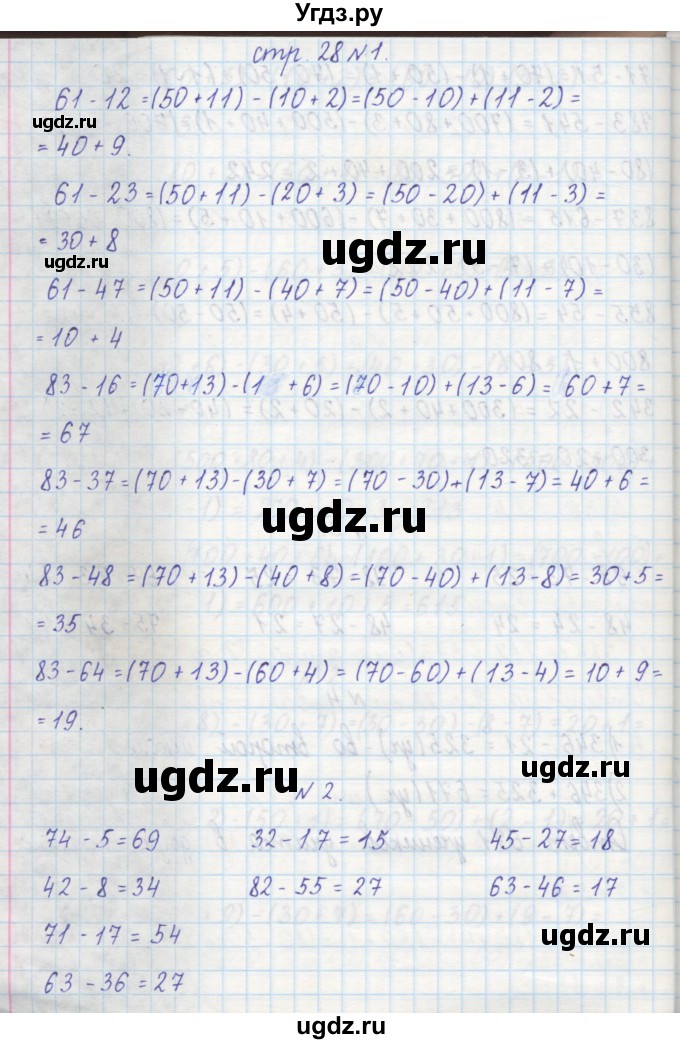 Угдз.ру
стр. 28 №1.
61 - 12 = (50 + 11) - (10 + 2) = (50 - 10) + (11 - 2) =
ugdz.ru
= 40 + 9.
61 - 23 = (50 + 11) - (20 + 3) = (50 - 20) + (11 - 3) =
= 30 + 8
ugdz.ru
ugdz.ru
61 - 47 = (50 + 11) - (40 + 7) = (50 - 40) + (11 - 7) =
= 10 + 4
83 - 16 = (70 + 13) - (1 + 6) = (70 - 10) + (13 - 6) = 60 + 7 =
= 67
83 - 37 = (70 + 13) - (30 + 7) = (70 - 30) + (13 - 7) = 40 + 6 =
= 46
ugdz.ru
83 - 48 = (70 + 13) - (40 + 8) = (70 - 40) + (13 - 8) = 30 + 5 =
= 35
83 - 64 = (70 + 13) - (60 + 4) = (70 - 60) + (13 - 4) = 10 + 9 =
= 19.
ugdz.ru
ugdz.ru
№ 2.
74 - 5 = 69 32 - 17 = 15 45 - 27 = 18
42 - 8 = 34 82 - 55 = 27 63 - 46 = 17
71 - 17 = 54
ugdz.ru
63 - 36 = 27
ugdz.ru